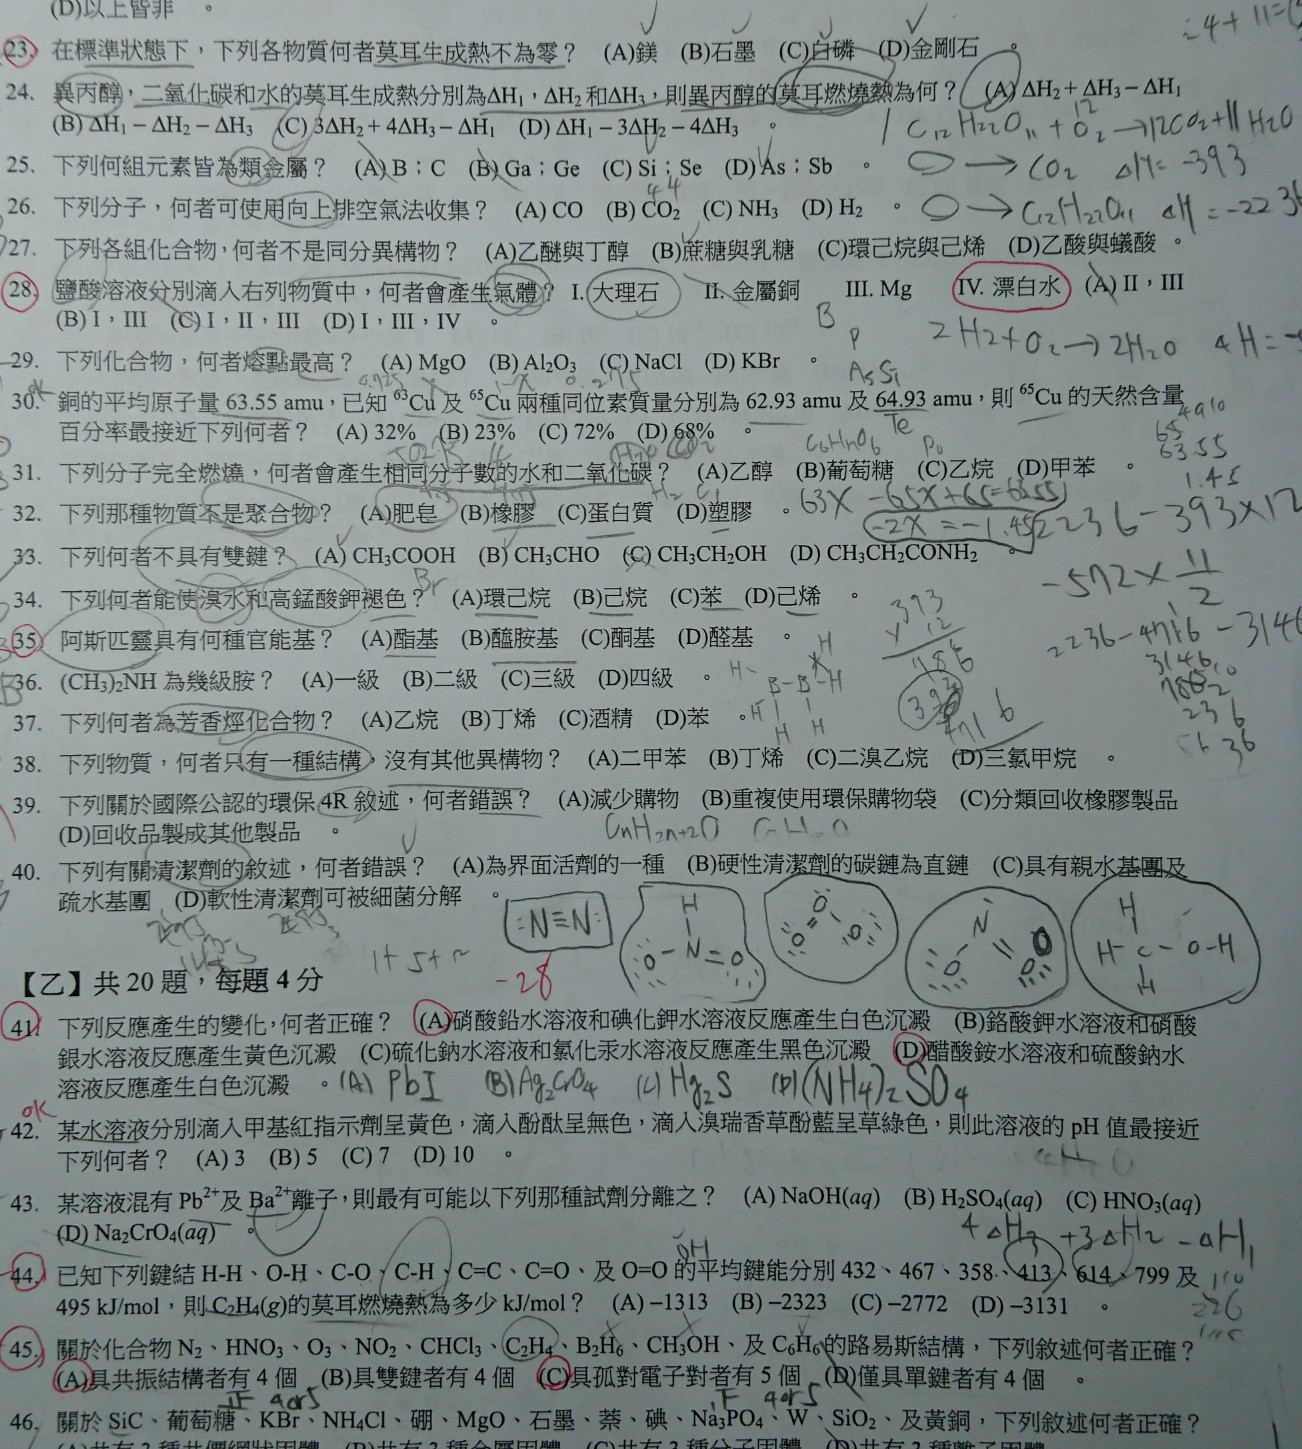 (D)以上皆非 。
23. 在標準狀態下，下列各物質何者莫耳生成熱不為零？ (A)鎂 (B)石墨 (C)白磷 (D)金剛石 。
24. 異丙醇，二氧化碳和水的莫耳生成熱分別為ΔH₁，ΔH₂和ΔH₃，則異丙醇的莫耳燃燒熱為何？ (A) ΔH₂ + ΔH₃ − ΔH₁
(B) ΔH₁ − ΔH₂ − ΔH₃ (C) 3ΔH₂ + 4ΔH₃ − ΔH₁ (D) ΔH₁ − 3ΔH₂ − 4ΔH₃ 。
C₁₂H₂₂O₁₁ + 12O₂ → 12CO₂ + 11H₂O
25. 下列何組元素皆為類金屬？ (A) B；C (B) Ga；Ge (C) Si；Se (D) As；Sb 。
→ CO₂ ΔH = -393
26. 下列分子，何者可使用向上排空氣法收集？ (A) CO (B) CO₂ (C) NH₃ (D) H₂ 。
→ C₁₂H₂₂O₁₁ ΔH = -2236
27. 下列各組化合物，何者不是同分異構物？ (A)乙醚與丁醇 (B)蔗糖與乳糖 (C)環己烷與己烯 (D)乙酸與蟻酸 。
28. 鹽酸溶液分別滴入右列物質中，何者會產生氣體？ I. 大理石 II. 金屬銅 III. Mg IV. 漂白水 (A) II，III
(B) I，III (C) I，II，III (D) I，III，IV 。
2H₂+O₂→2H₂O ΔH=
29. 下列化合物，何者熔點最高？ (A) MgO (B) Al₂O₃ (C) NaCl (D) KBr 。
30. 銅的平均原子量 63.55 amu，已知 ⁶³Cu 及 ⁶⁵Cu 兩種同位素質量分別為 62.93 amu 及 64.93 amu，則 ⁶⁵Cu 的天然含量
百分率最接近下列何者？ (A) 32% (B) 23% (C) 72% (D) 68% 。
31. 下列分子完全燃燒，何者會產生相同分子數的水和二氧化碳？ (A)乙醇 (B)葡萄糖 (C)乙烷 (D)甲苯 。
32. 下列那種物質不是聚合物？ (A)肥皂 (B)橡膠 (C)蛋白質 (D)塑膠 。
63X -65X+65=63.55
-2X = -1.45
2236-393×12
33. 下列何者不具有雙鍵？ (A) CH₃COOH (B) CH₃CHO (C) CH₃CH₂OH (D) CH₃CH₂CONH₂ 。
-572× 11/2
34. 下列何者能使溴水和高錳酸鉀褪色？ (A)環己烷 (B)己烷 (C)苯 (D)己烯 。
35. 阿斯匹靈具有何種官能基？ (A)酯基 (B)醯胺基 (C)酮基 (D)醛基 。
2236-4716-3146
36. (CH₃)₂NH 為幾級胺？ (A)一級 (B)二級 (C)三級 (D)四級 。
37. 下列何者為芳香烴化合物？ (A)乙烷 (B)丁烯 (C)酒精 (D)苯 。
38. 下列物質，何者只有一種結構，沒有其他異構物？ (A)二甲苯 (B)丁烯 (C)二溴乙烷 (D)三氯甲烷 。
39. 下列關於國際公認的環保 4R 敘述，何者錯誤？ (A)減少購物 (B)重複使用環保購物袋 (C)分類回收橡膠製品
(D)回收品製成其他製品 。
40. 下列有關清潔劑的敘述，何者錯誤？ (A)為界面活劑的一種 (B)硬性清潔劑的碳鏈為直鏈 (C)具有親水基團及
疏水基團 (D)軟性清潔劑可被細菌分解 。
:N≡N:
-28
【乙】共 20 題，每題 4 分
41. 下列反應產生的變化，何者正確？ (A)硝酸鉛水溶液和碘化鉀水溶液反應產生白色沉澱 (B)鉻酸鉀水溶液和硝酸
銀水溶液反應產生黃色沉澱 (C)硫化鈉水溶液和氯化汞水溶液反應產生黑色沉澱 (D)醋酸銨水溶液和硫酸鈉水
溶液反應產生白色沉澱 。
(A) PbI (B) Ag₂CrO₄ (C) Hg₂S (D) (NH₄)₂SO₄
OK
42. 某水溶液分別滴入甲基紅指示劑呈黃色，滴入酚酞呈無色，滴入溴瑞香草酚藍呈草綠色，則此溶液的 pH 值最接近
下列何者？ (A) 3 (B) 5 (C) 7 (D) 10 。
43. 某溶液混有 Pb²⁺及 Ba²⁺離子，則最有可能以下列那種試劑分離之？ (A) NaOH(aq) (B) H₂SO₄(aq) (C) HNO₃(aq)
(D) Na₂CrO₄(aq) 。
4ΔH₃ +3ΔH₂ -ΔH₁
44. 已知下列鍵結 H-H、O-H、C-O、C-H、C=C、C=O、及 O=O 的平均鍵能分別 432、467、358、413、614、799 及
495 kJ/mol，則 C₂H₄(g)的莫耳燃燒熱為多少 kJ/mol？ (A) −1313 (B) −2323 (C) −2772 (D) −3131 。
45. 關於化合物 N₂、HNO₃、O₃、NO₂、CHCl₃、C₂H₄、B₂H₆、CH₃OH、及 C₆H₆的路易斯結構，下列敘述何者正確？
(A)具共振結構者有 4 個 (B)具雙鍵者有 4 個 (C)具孤對電子對者有 5 個 (D)僅具單鍵者有 4 個 。
46. 關於 SiC、葡萄糖、KBr、NH₄Cl、硼、MgO、石墨、萘、碘、Na₃PO₄、W、SiO₂、及黃銅，下列敘述何者正確？